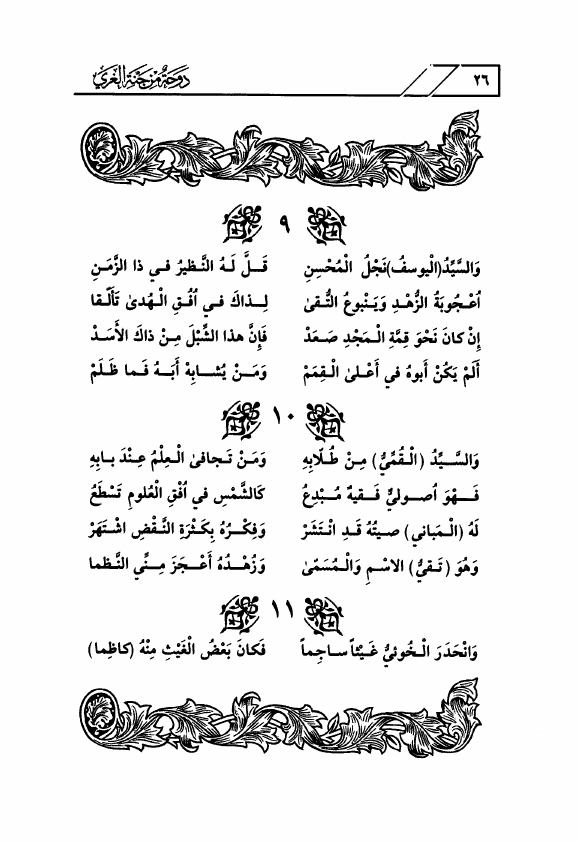 ٢٦ دوحة من جنة الغري
٩
وَالسَّيِّدُ (الْيوسفُ) نَجْلُ الْمُحْسِنِ قَلَّ لَهُ النَّظيرُ في ذا الزَّمَنِ
اُعْجُوبَةُ الزُّهْدِ وَيَنْبوعُ التُّقىٰ لِذاكَ في اُفُقِ الْهُدىٰ تَأَلَّقا
إنْ كانَ نَحْوَ قِمَّةِ الْمَجْدِ صَعَدْ فَإنَّ هذا الشِّبْلَ مِنْ ذاكَ الأَسَدْ
أَلَمْ يَكُنْ أَبوهُ في أَعْلىٰ الْقِمَمْ وَمَنْ يُشابِهْ أَبَهُ فَما ظَلَمْ
١٠
وَالسَّيِّدُ (الْقُمِّيُّ) مِنْ طُلّابِهِ وَمَنْ تَجافىٰ الْعِلْمُ عِنْدَ بابِهِ
فَهْوَ اُصوليٌّ فَقيهٌ مُبْدِعُ كَالشَّمْسِ في اُفْقِ الْعُلومِ تَسْطَعُ
لَهُ (الْمَباني) صيتُهُ قَدِ انْتَشَرْ وَفِكْرُهُ بِكَثْرَةِ النَّقْضِ اشْتَهَرْ
وَهُوَ (تَقيُّ) الاسْمِ وَالْمُسَمّىٰ وَزُهْدُهُ أَعْجَزَ مِنِّي النَّظما
١١
وَانْحَدَرَ الْخُوئيُّ غَيْثاً ساجِماً فَكانَ بَعْضُ الْغَيْثِ مِنْهُ (كاظِما)